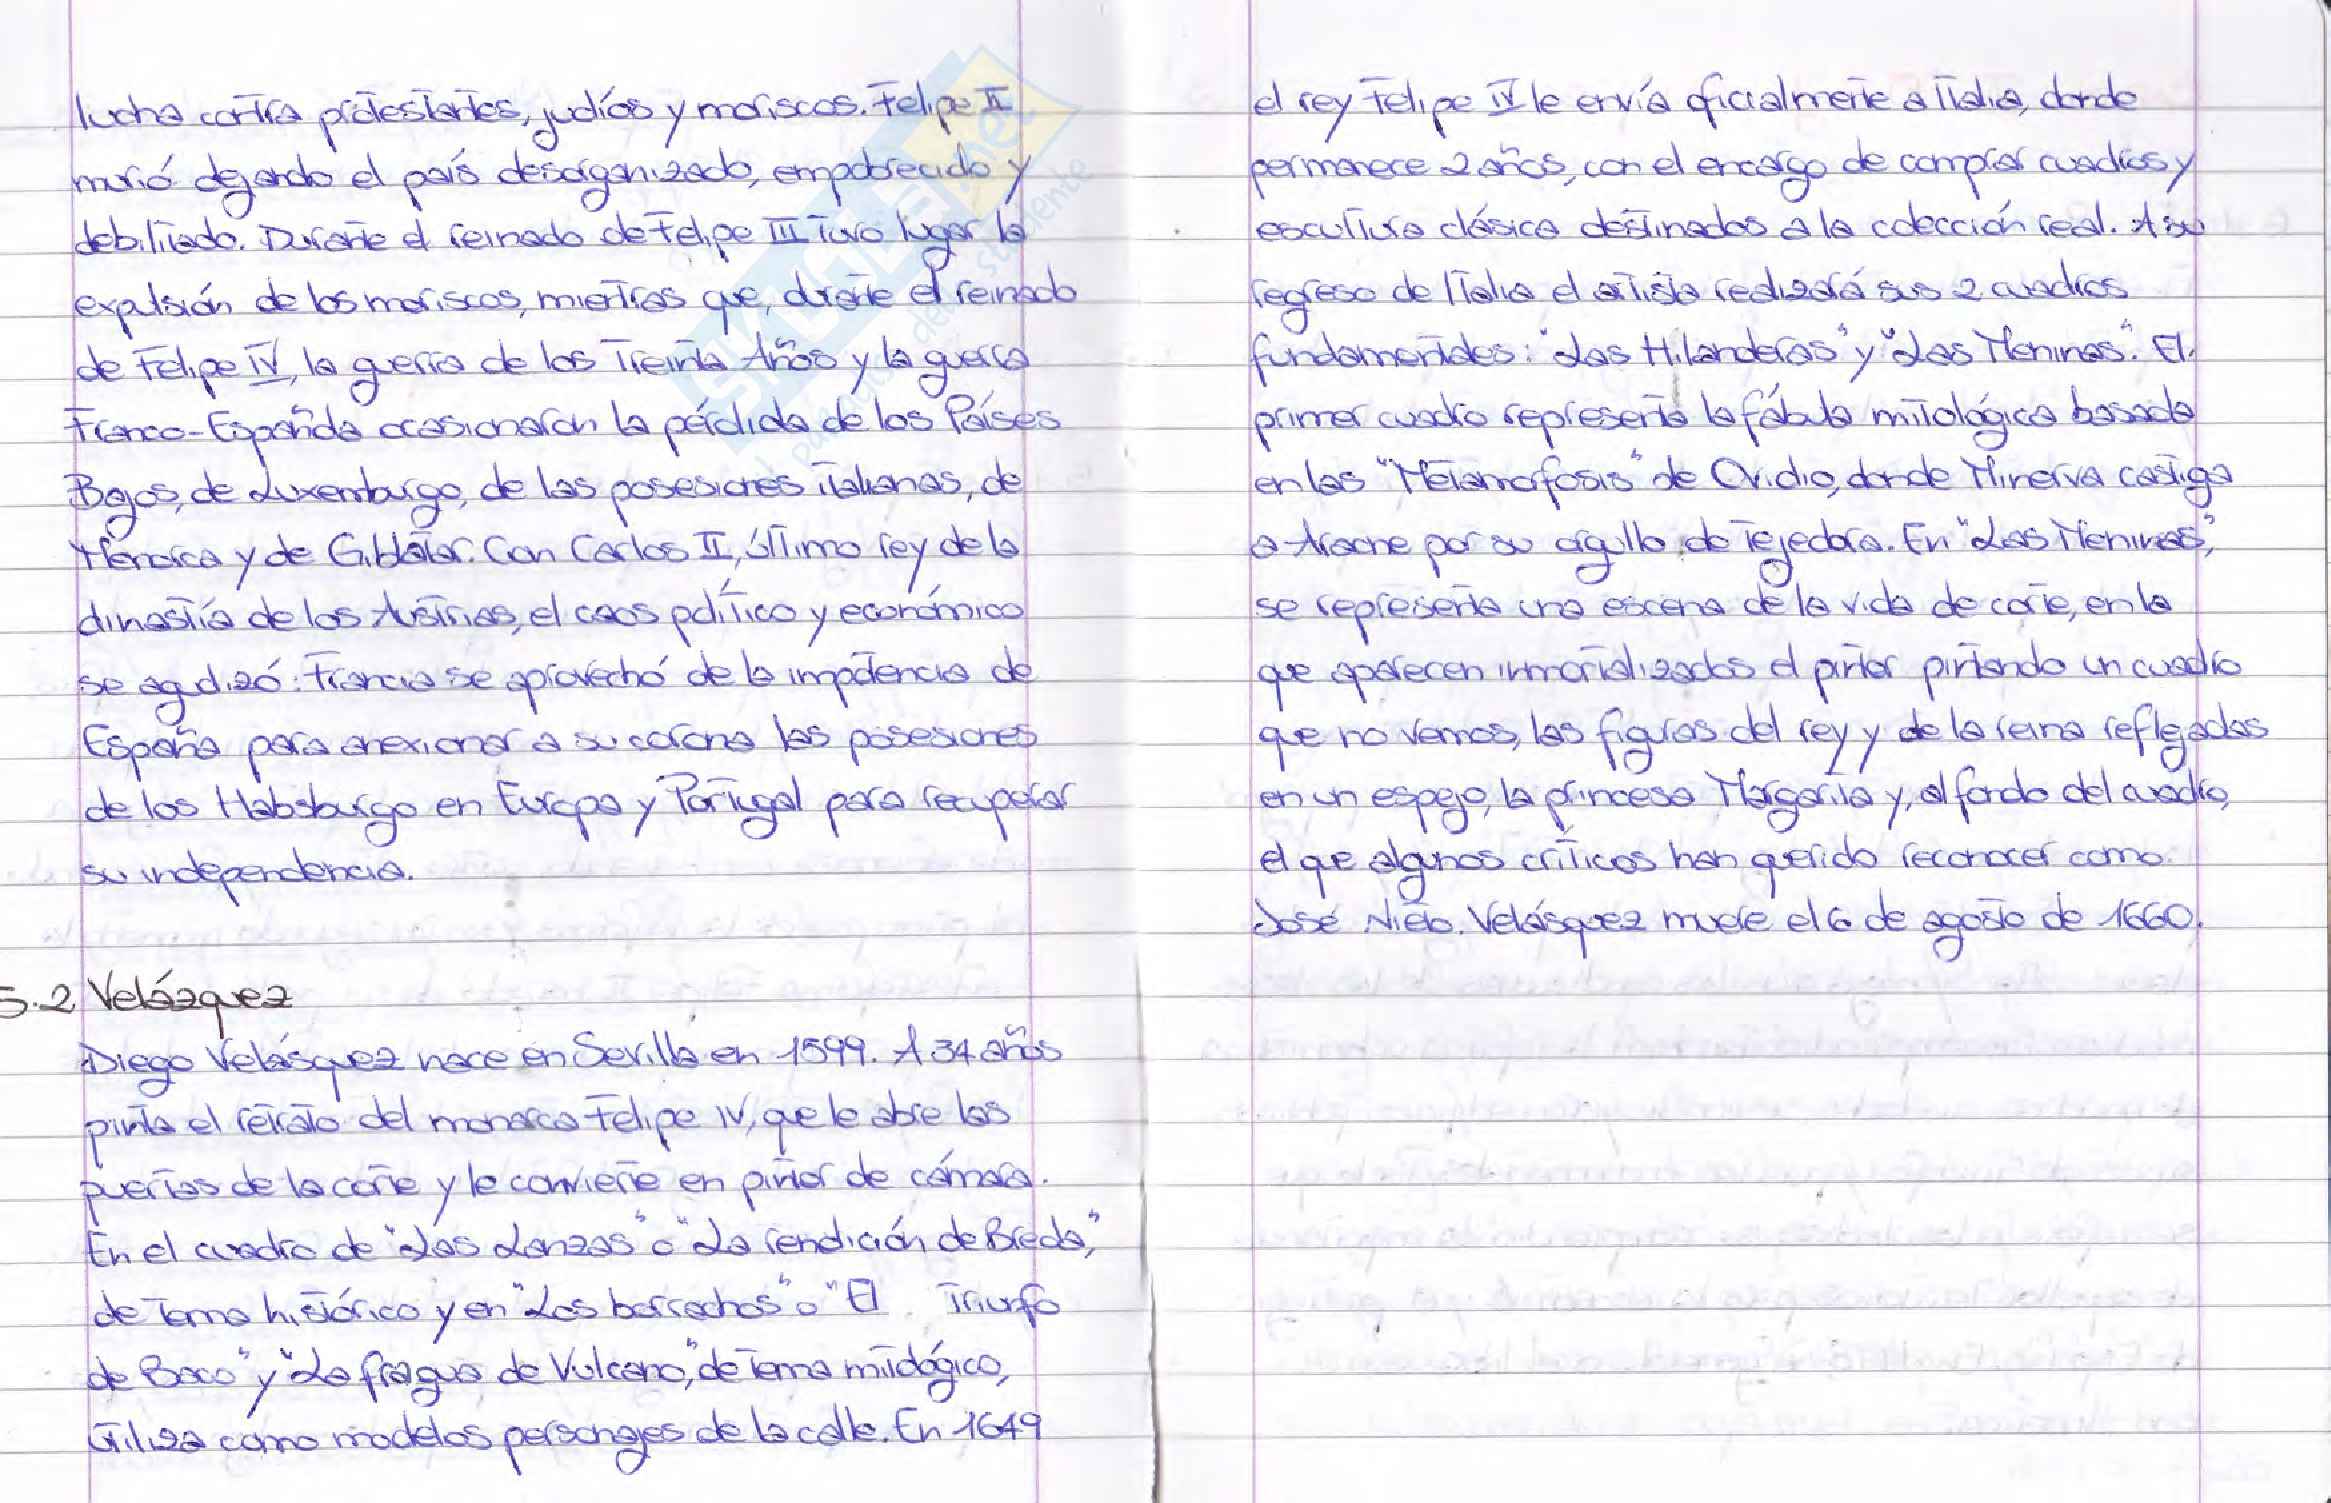 lucha contra protestantes, judíos y moriscos. Felipe II
murió dejando el país desorganizado, empobrecido y
debilitado. Durante el reinado de Felipe III tuvo lugar la
expulsión de los moriscos, mientras que, durante el reinado
de Felipe IV, la guerra de los Treinta Años y la guerra
Franco-Española ocasionaron la pérdida de los Países
Bajos, de Luxemburgo, de las posesiones italianas, de
Menorca y de Gibltar. Con Carlos II, último rey de la
dinastía de los Austrias, el caos político y económico
se agudizó: Francia se aprovechó de la impotencia de
España para anexionar a su corona las posesiones
de los Habsburgo en Europa y Portugal para recuperar
su independencia.
5.2 Velázquez
Diego Velásquez nace en Sevilla en 1599. A 34 años
pinta el retrato del monarca Felipe IV, que le abre las
puertas de la corte y le convierte en pintor de cámara.
En el cuadro de "Las Lanzas" o "La rendición de Breda",
de tema histórico y en "Los borrachos" o "El Triunfo
de Baco" y "La fragua de Vulcano", de tema mitológico,
utiliza como modelos personajes de la calle. En 1649
el rey Felipe IV le envía oficialmente a Italia, donde
permanece 2 años, con el encargo de comprar cuadros y
escultura clásica destinados a la colección real. A su
regreso de Italia el artista realizará sus 2 cuadros
fundamentales: "Las Hilanderas" y "Las Meninas". El
primer cuadro representa la fábula mitológica basada
en las "Metamorfosis" de Ovidio, donde Minerva castiga
a Aracne por su orgullo de tejedora. En "Las Meninas",
se representa una escena de la vida de corte, en la
que aparecen inmortalizados el pintor pintando un cuadro
que no vemos, las figuras del rey y de la reina reflejadas
en un espejo, la princesa Margarita y, al fondo del cuadro,
el que algunos críticos han querido reconocer como
José Nieto. Velásquez muere el 6 de agosto de 1660.